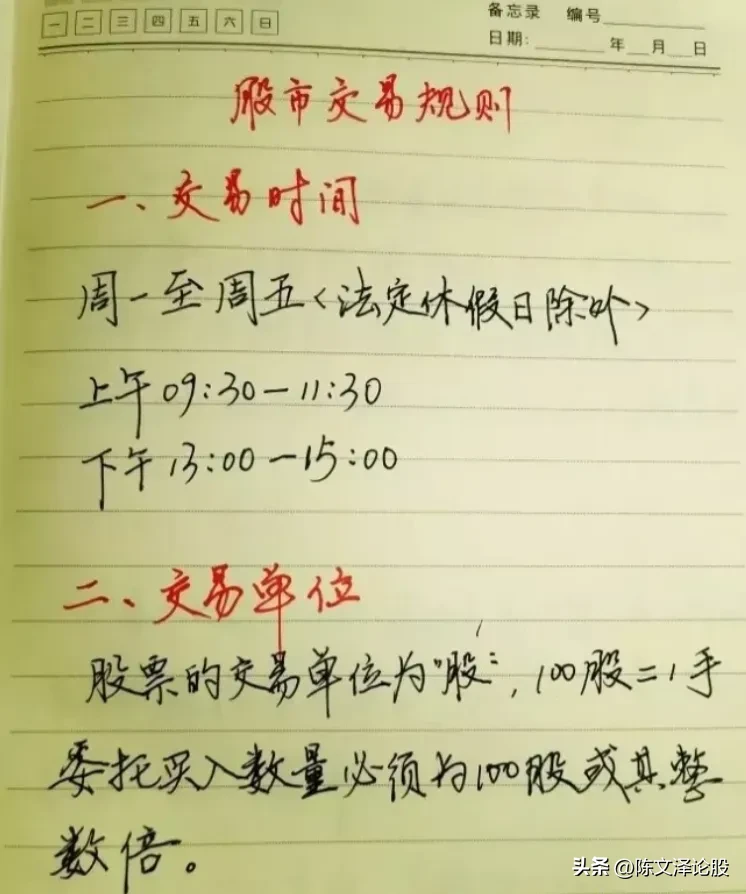 一 二 三 四 五 六 日
备忘录 编号
日期: 年 月 日
股市交易规则
一、交易时间
周一至周五<法定休假日除外>
上午09:30—11:30
下午13:00—15:00
二、交易单位
股票的交易单位为"股",100股=1手
委托买入数量必须为100股或其整
数倍。
头条 @陈文泽论股